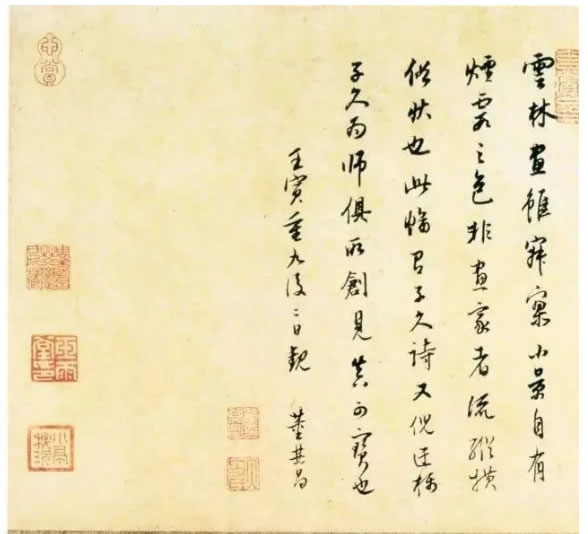 雲林畫雖寂寞小景自有
煙霞之色非畫家者流縱橫
俗狀也此幅有子久詩又倪迂稱
子久為師俱所創見真可寶也
壬寅重九後二日觀 董其昌